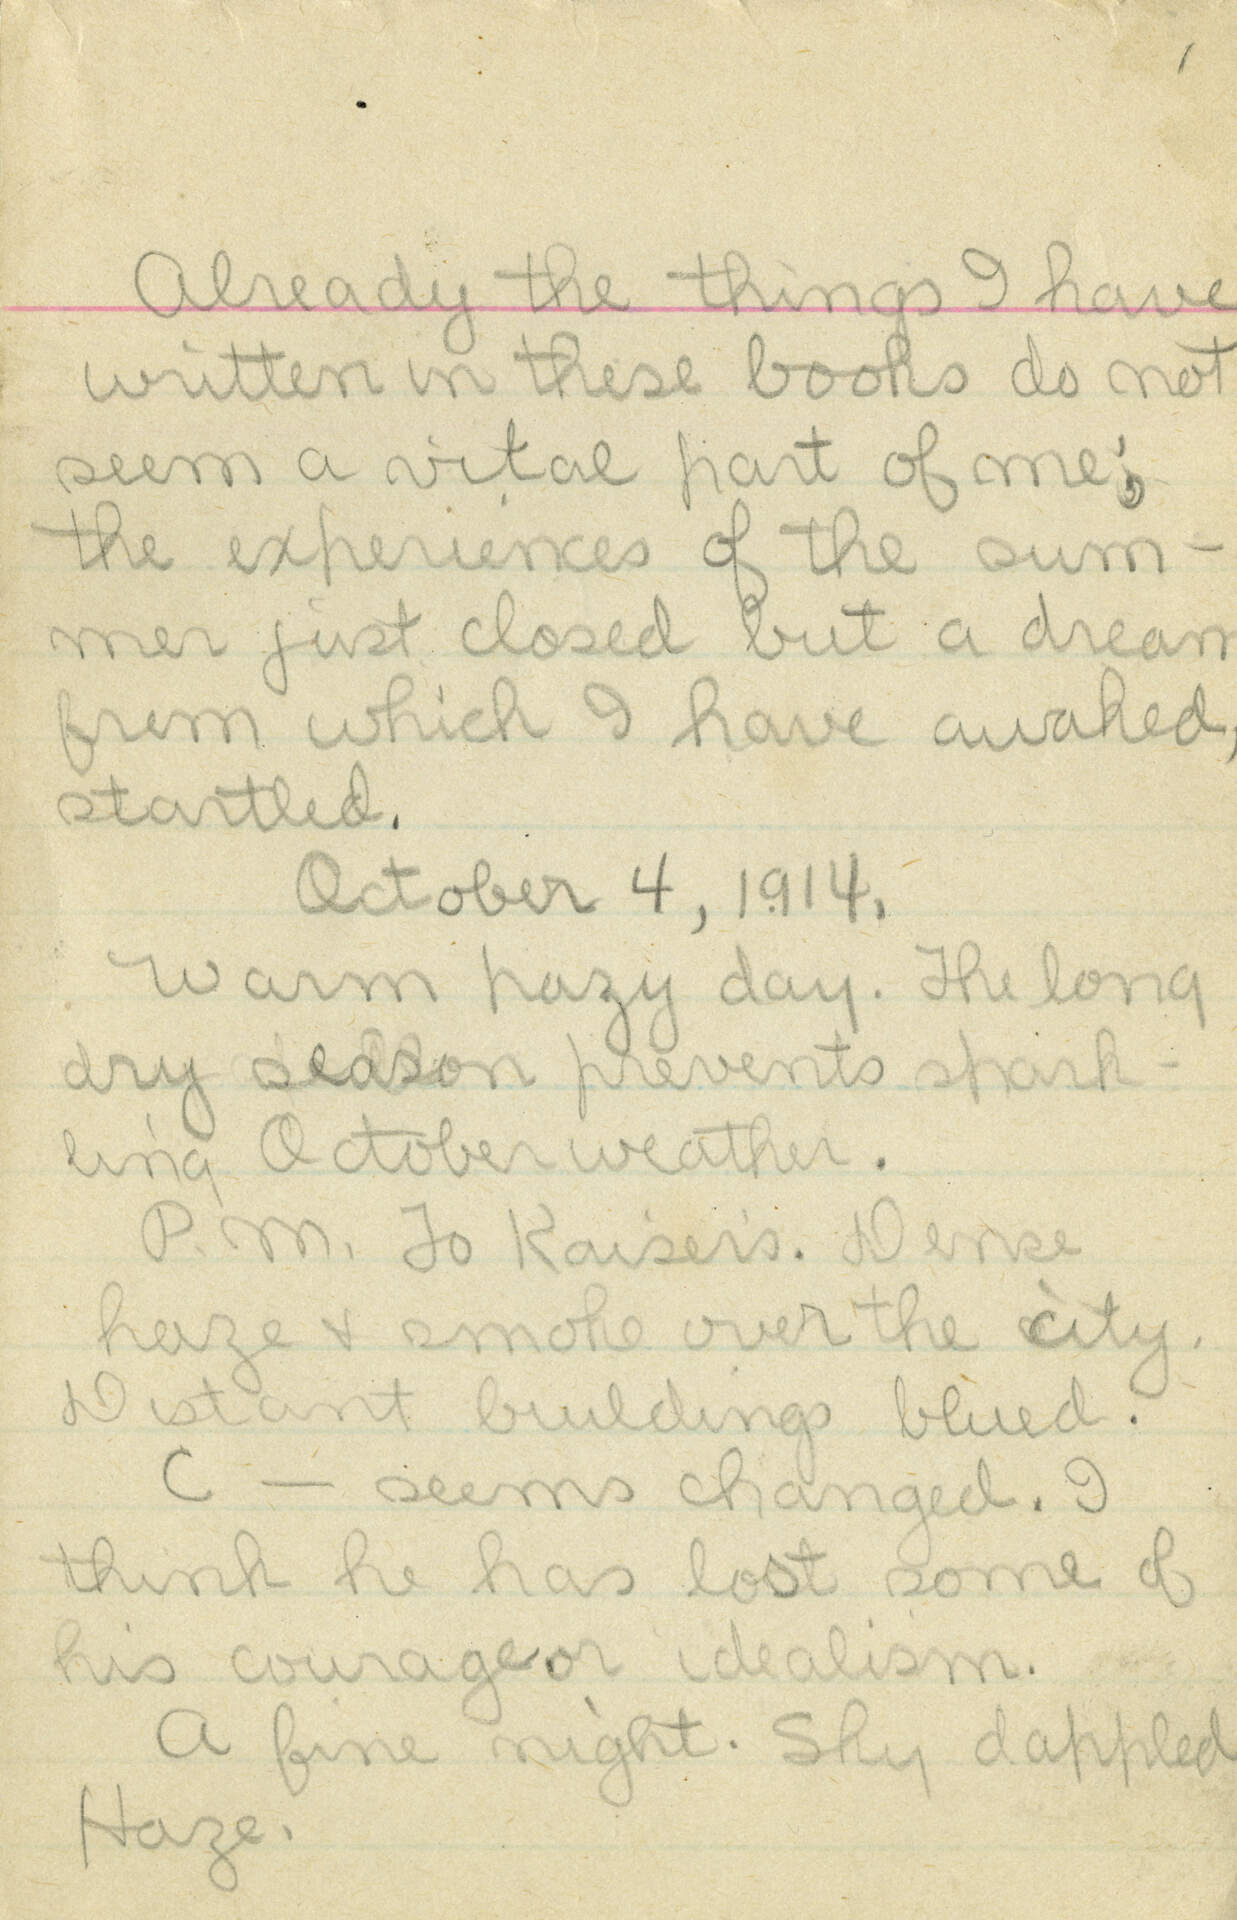 1
Already the things I have
written in these books do not
seem a vital part of me;
the experiences of the sum-
mer just closed but a dream
from which I have awaked,
startled.
October 4, 1914.
Warm hazy day. The long
dry season prevents spark-
ling October weather.
P.M. To Kaiser's. Dense
haze & smoke over the city.
Distant buildings blued.
C — seems changed. I
think he has lost some of
his courage or idealism.
A fine night. Sky dappled
Haze.